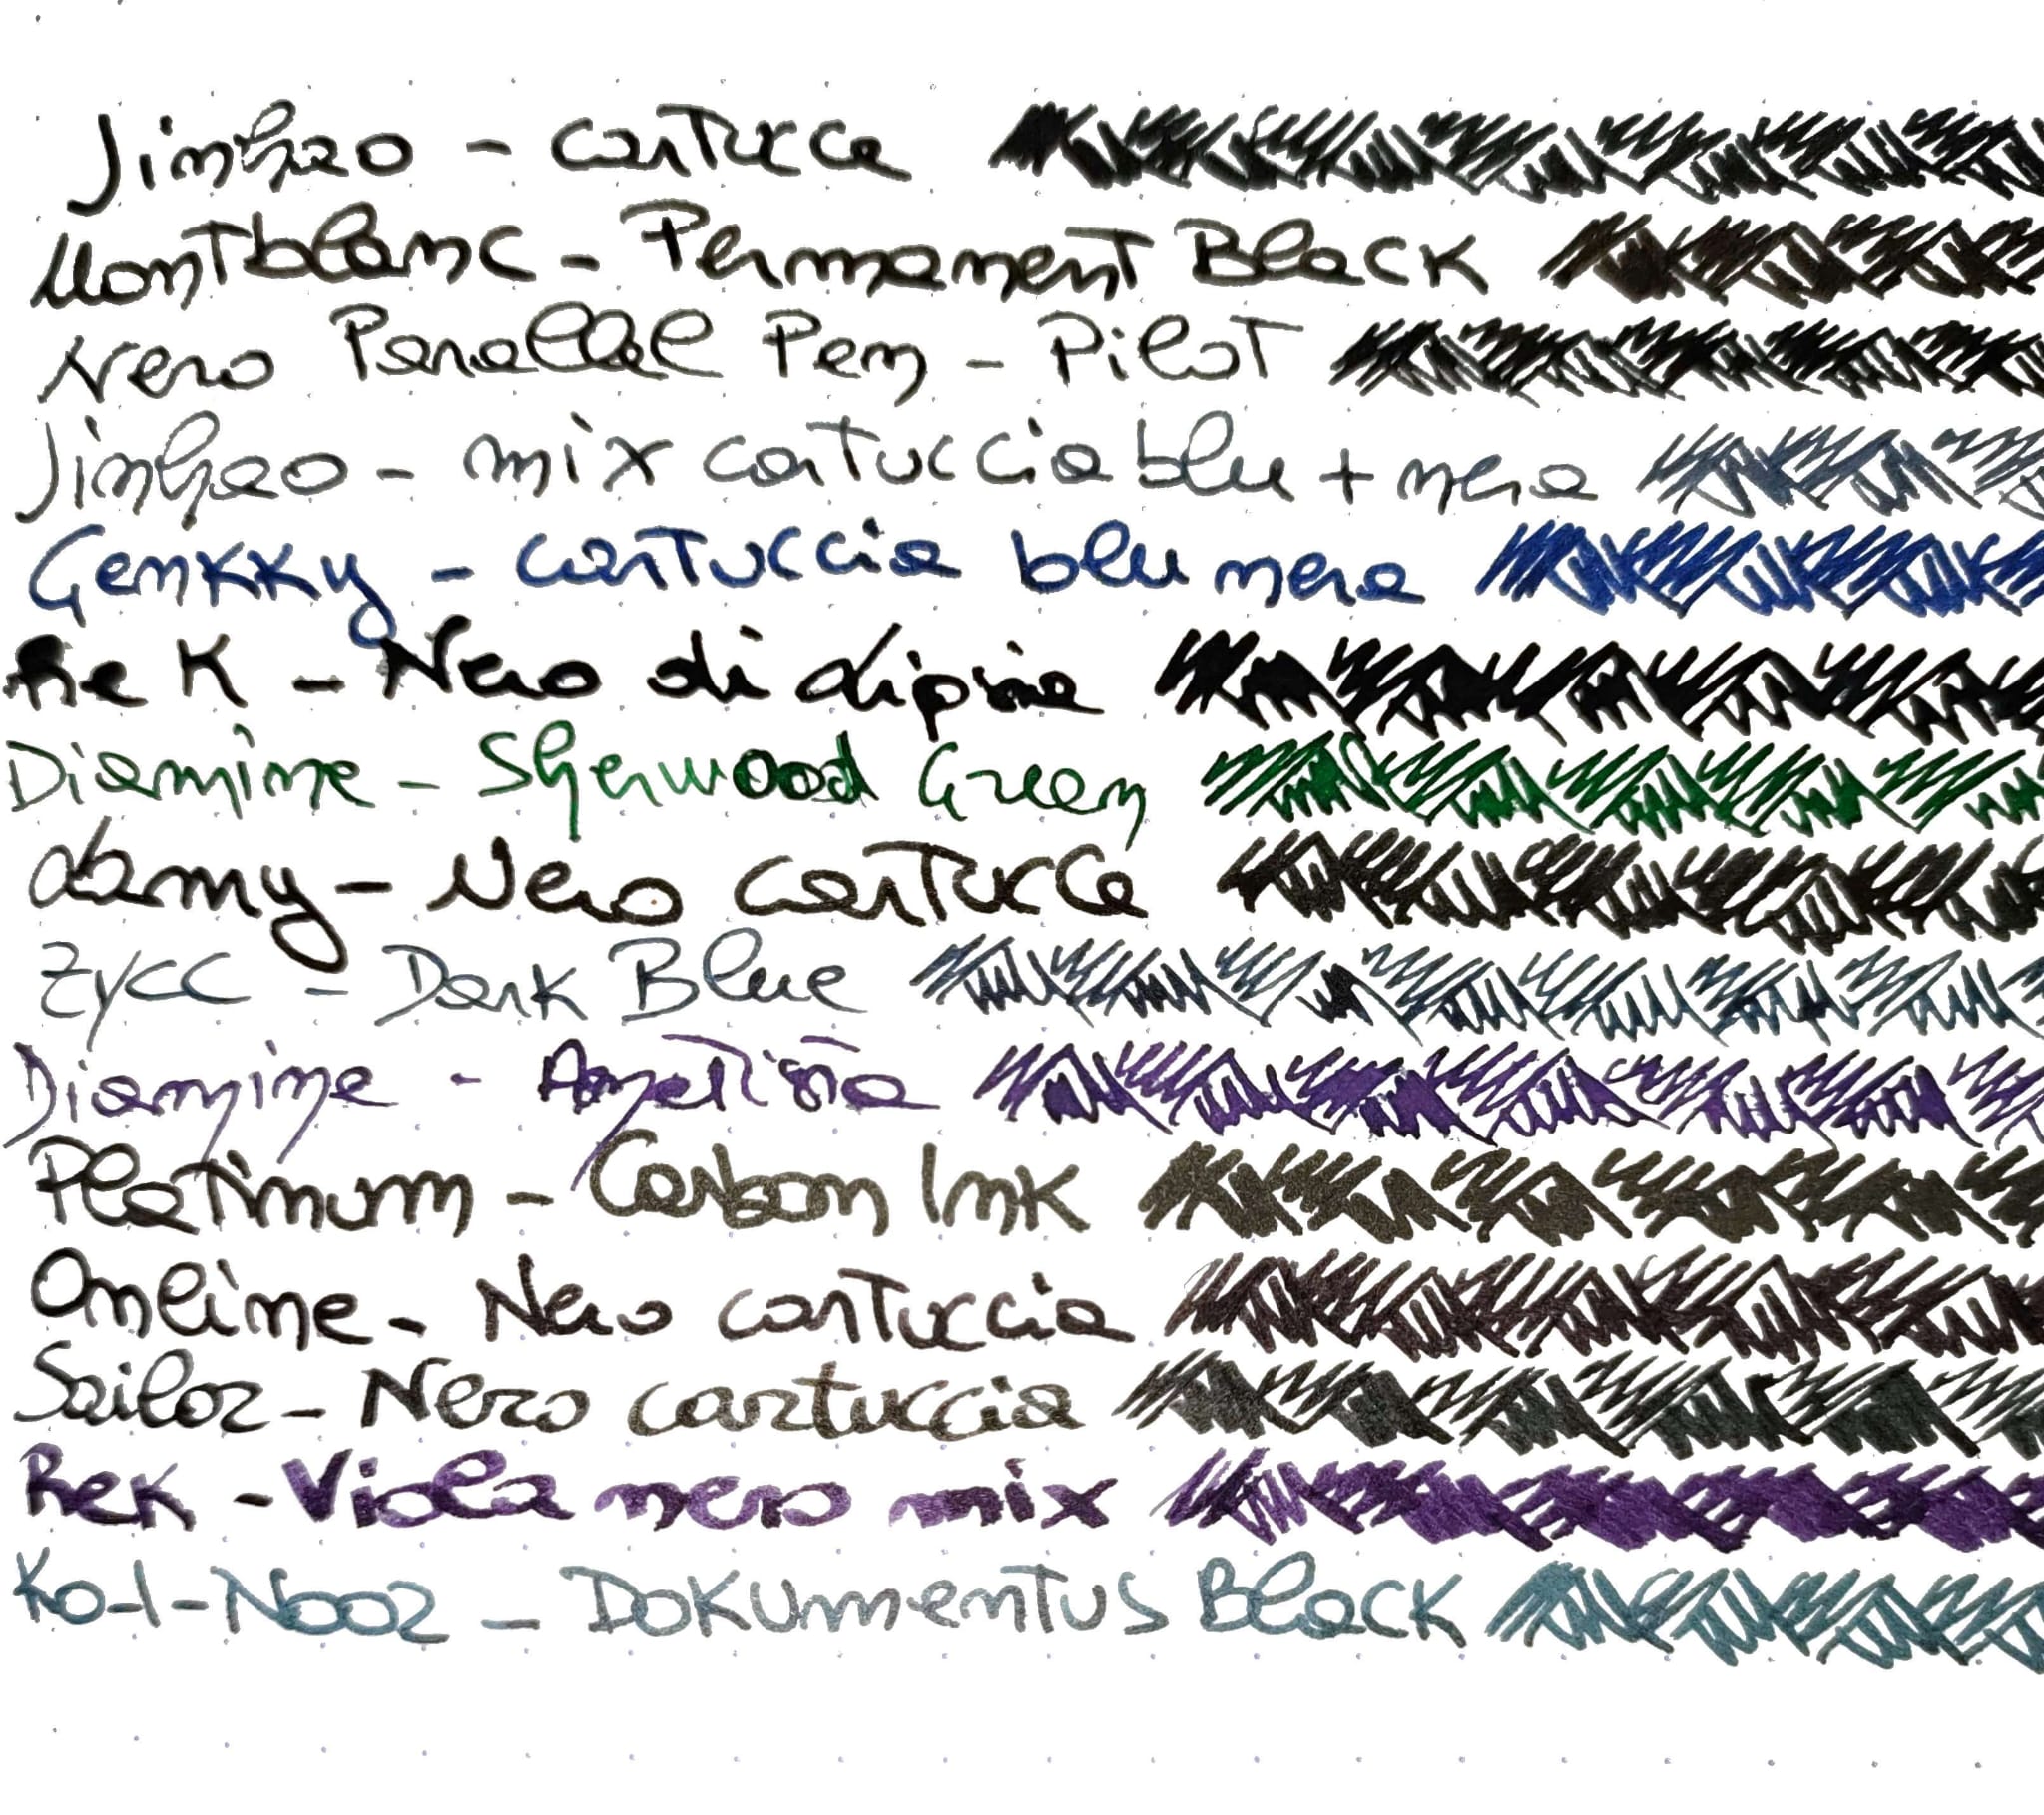 Jinhao - cartucce
Montblanc - Permanent Black
Nero Parallel Pen - Pilot
Jinhao - mix cartuccia blu + nera
Genkky - cartuccia blu nera
ReK - Nero di
Diamine - Sherwood Green
Lamy - Nero cartucce
Zycc - Dark Blue
Diamine - Ametista
Platinum - Carbon Ink
Online - Nero cartuccia
Sailor - Nero cartuccia
ReK - Viola nero mix
Ko-I-Noor - Dokumentus Black